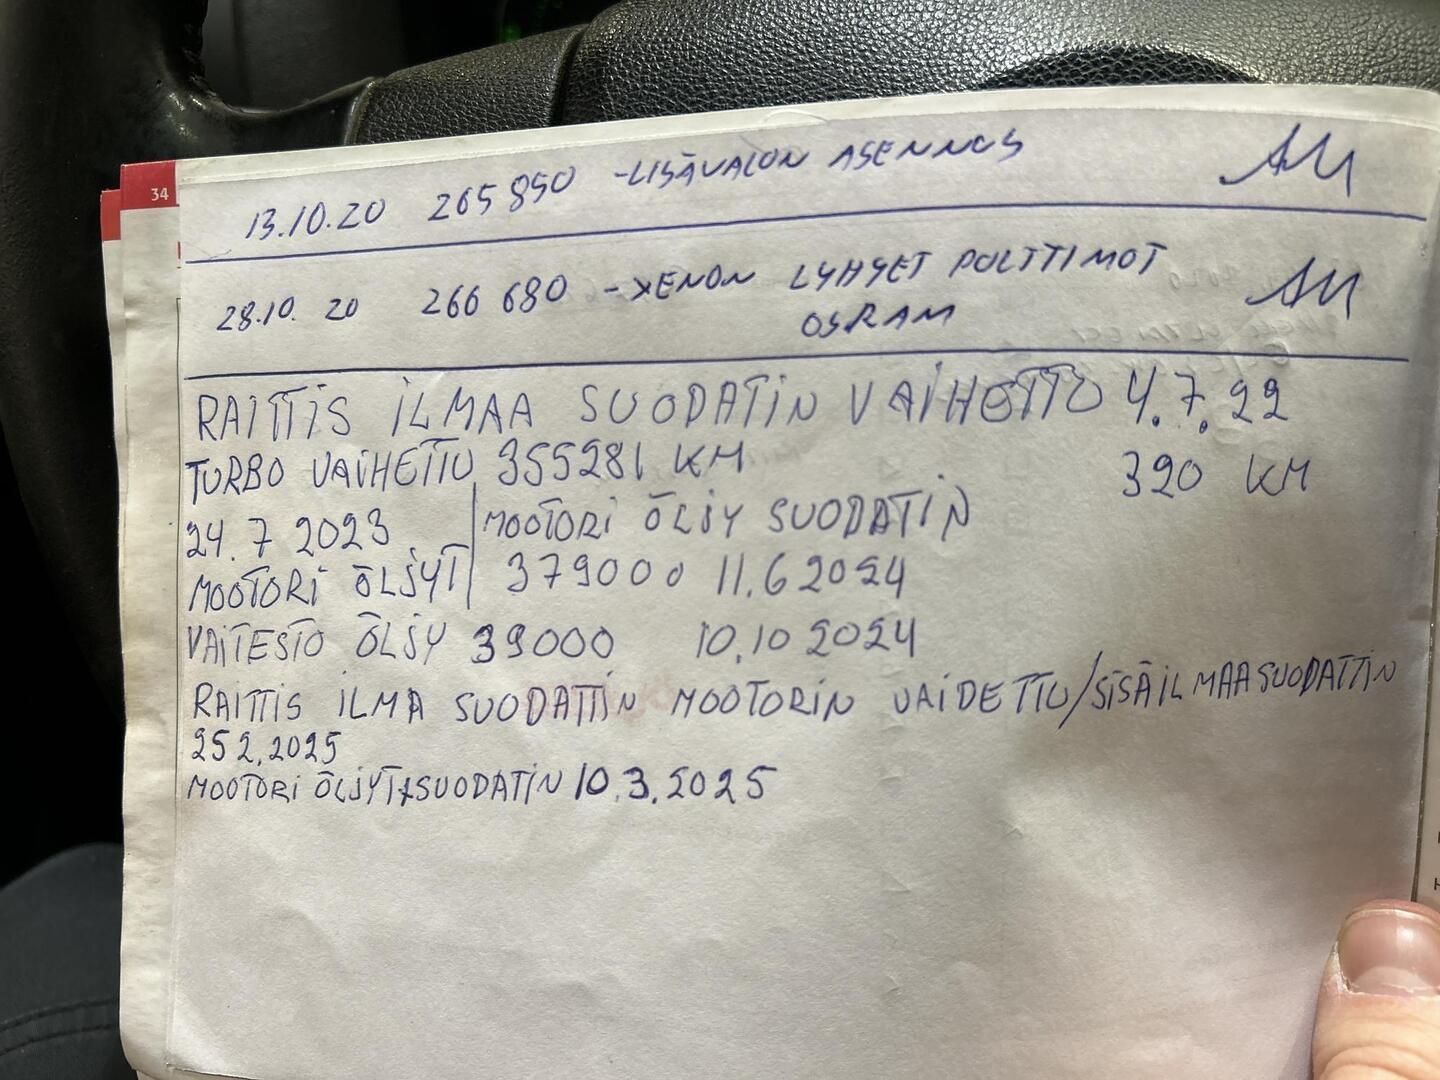 34
13.10.20 265 850 -LISÄVALON ASENNUS AU
28.10. 20 266 680 -XENON LYHYET POLTTIMOT AU
OSRAM
RAITTIS ILMAA SUODATIN VAIHETTO 4.7.22
TURBO VAIHETTU 355281 KM 320 KM
24.7 2023 MOOTORI ÖLJY SUODATIN
MOOTORI ÖLJYT 379000 11.6 2024
VAITESTO ÖLJY 39000 10.10 2024
RAITTIS ILMA SUODATTIN MOOTORIN VAIDETTU/SISÄILMAASUODATTIN
25 2.2025
MOOTORI ÖLJYT+SUODATIN 10.3.2025